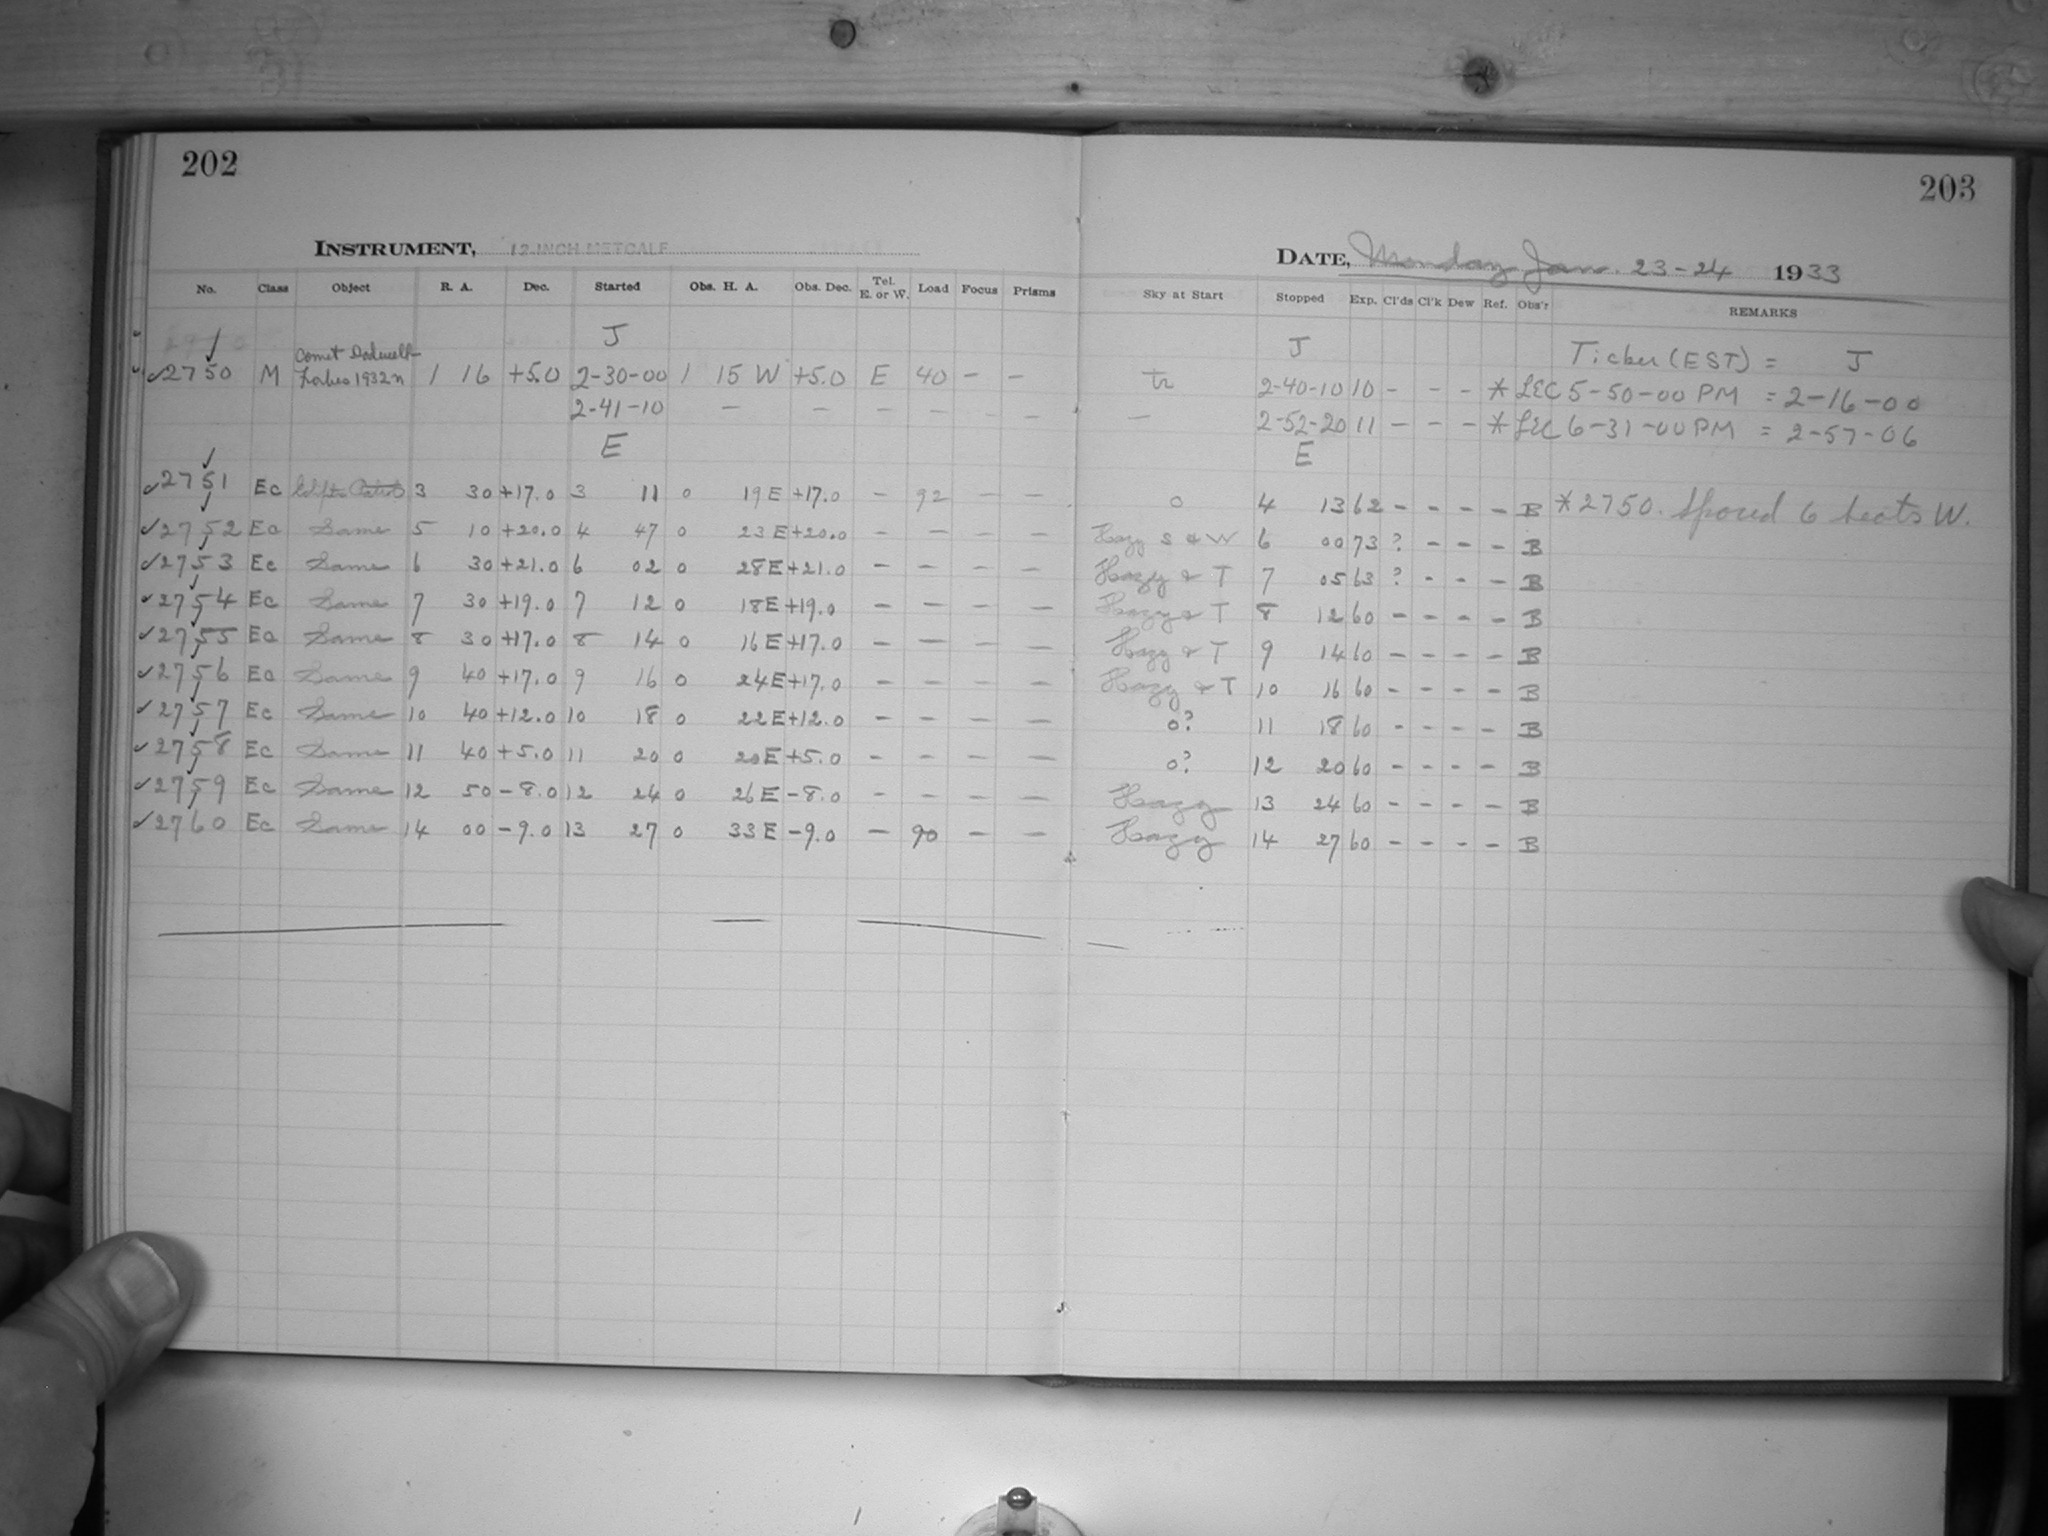 202
INSTRUMENT, 12-INCH METCALF
No. Class Object R. A. Dec. Started Obs. H. A. Obs. Dec. Tel. E. or W. Load Focus Prisms
J
✓2750 M Comet Dodwell Forbes 1932n 1 16 +5.0 2-30-00 1 15 W +5.0 E 40 - -
2-41-10 - - - - - -
E
✓2751 Ec 3 30 +17.0 3 11 0 19 E +17.0 - 92 - -
✓2752 Ec Same 5 10 +20.0 4 47 0 23 E +20.0 - - - -
✓2753 Ec Same 6 30 +21.0 6 02 0 28 E +21.0 - - - -
✓2754 Ec Same 7 30 +19.0 7 12 0 18 E +19.0 - - - -
✓2755 Ec Same 8 30 +17.0 8 14 0 16 E +17.0 - - - -
✓2756 Ec Same 9 40 +17.0 9 16 0 24 E +17.0 - - - -
✓2757 Ec Same 10 40 +12.0 10 18 0 22 E +12.0 - - - -
✓2758 Ec Same 11 40 +5.0 11 20 0 20 E +5.0 - - - -
✓2759 Ec Same 12 50 -8.0 12 24 0 26 E -8.0 - - - -
✓2760 Ec Same 14 00 -9.0 13 27 0 33 E -9.0 - 90 - -
203
DATE, Monday Jan. 23-24 1933
Sky at Start Stopped Exp. Cl'ds Cl'k Dew Ref. Obs'r REMARKS
J Ticker (EST) = J
tr 2-40-10 10 - - - * LEC 5-50-00 PM = 2-16-00
- 2-52-20 11 - - - * LEC 6-31-00 PM = 2-57-06
E
0 4 13 62 - - - - B *2750. Spaced 6 beats W.
Hazy S & W 6 00 73 ? - - - B
Hazy & T 7 05 63 ? - - - B
Hazy & T 8 12 60 - - - - B
Hazy & T 9 14 60 - - - - B
Hazy & T 10 16 60 - - - - B
0? 11 18 60 - - - - B
0? 12 20 60 - - - - B
Hazy 13 24 60 - - - - B
Hazy 14 27 60 - - - - B